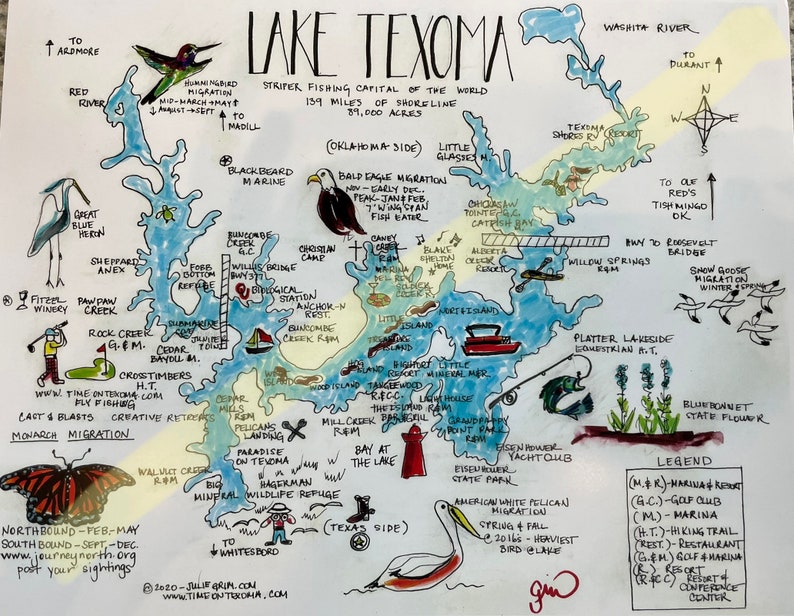 LAKE TEXOMA
STRIPER FISHING CAPITAL OF THE WORLD
139 MILES OF SHORELINE
89,000 ACRES
WASHITA RIVER
TO
ARDMORE
HUMMINGBIRD
MIGRATION
MID-MARCH → MAY
AUGUST → SEPT
RED
RIVER
TO
MADILL
TO
DURANT
N
W E
S
TEXOMA
SHORES RV (RESORT)
(OKLAHOMA SIDE)
LITTLE
GLASSES M.
BLACKBEARD
MARINE
BALD EAGLE MIGRATION
NOV - EARLY DEC.
PEAK - JAN & FEB.
7' WINGSPAN
FISH EATER
TO OLE
RED'S
TISHMINGO
OK
GREAT
BLUE
HERON
CHICKASAW
POINTE G.C.
CATFISH BAY
BUNCOMBE
CREEK
G.C.
CHRISTIAN
CAMP
CANEY
CREEK
R&M
BLAKE
SHELTON
HOME
ALBERTA
CREEK
RESORT
HWY TO ROOSEVELT
BRIDGE
SHEPPARD
ANEX
FOBB
BOTTOM
REFUGE
WILLIS BRIDGE
HWY 377
BIOLOGICAL
STATION
MARINA
DEL REY
SOLDIER
CREEK RV
WILLOW SPRINGS
R&M
SNOW GOOSE
MIGRATION
WINTER & SPRING
FITZEL
WINERY
PAW PAW
CREEK
ANCHOR-N
REST.
SUBMARINE
COVE
JUNIPER
POINT
LITTLE
ISLAND
NORTH ISLAND
ROCK CREEK
G. & M.
CEDAR
BAYOU M.
BUNCOMBE
CREEK R&M
TREASURE
ISLAND
PLATTER LAKESIDE
EQUESTRIAN H.T.
CROSSTIMBERS
H.T.
HOG
ISLAND
HIGHPORT
RESORT
LITTLE
MINERAL M&R
WWW.TIMEONTEXOMA.COM
FLY FISHING
WOOD ISLAND
TANGLEWOOD
R.&C.C.
THE ISLAND
BAR & GRILL
LIGHTHOUSE
R&M
CAST & BLASTS CREATIVE RETREATS
CEDAR
MILLS
R&M
GRANDPAPPY
POINT PARK
R&M
BLUEBONNET
STATE FLOWER
MONARCH MIGRATION
PELICANS
LANDING
MILL CREEK
R&M
BAY AT
THE LAKE
EISENHOWER
YACHT CLUB
PARADISE
ON TEXOMA
EISENHOWER
STATE PARK
WALNUT CREEK
R&M
BIG
MINERAL
HAGERMAN
WILDLIFE REFUGE
NORTHBOUND - FEB.-MAY
SOUTHBOUND - SEPT.-DEC.
www.journeynorth.org
post your sightings
TO
WHITESBORO
(TEXAS SIDE)
AMERICAN WHITE PELICAN
MIGRATION
SPRING & FALL
@ 20 lbs - HEAVIEST
BIRD @ LAKE
LEGEND
(M & R) - MARINA & RESORT
(G.C.) - GOLF CLUB
(M.) - MARINA
(H.T.) - HIKING TRAIL
(REST.) - RESTAURANT
(G. & M) GOLF & MARINA
(R.) RESORT
(R & CC) RESORT &
CONFERENCE
CENTER
© 2020 - JULIEGRIM.COM
WWW.TIMEONTEXOMA.COM